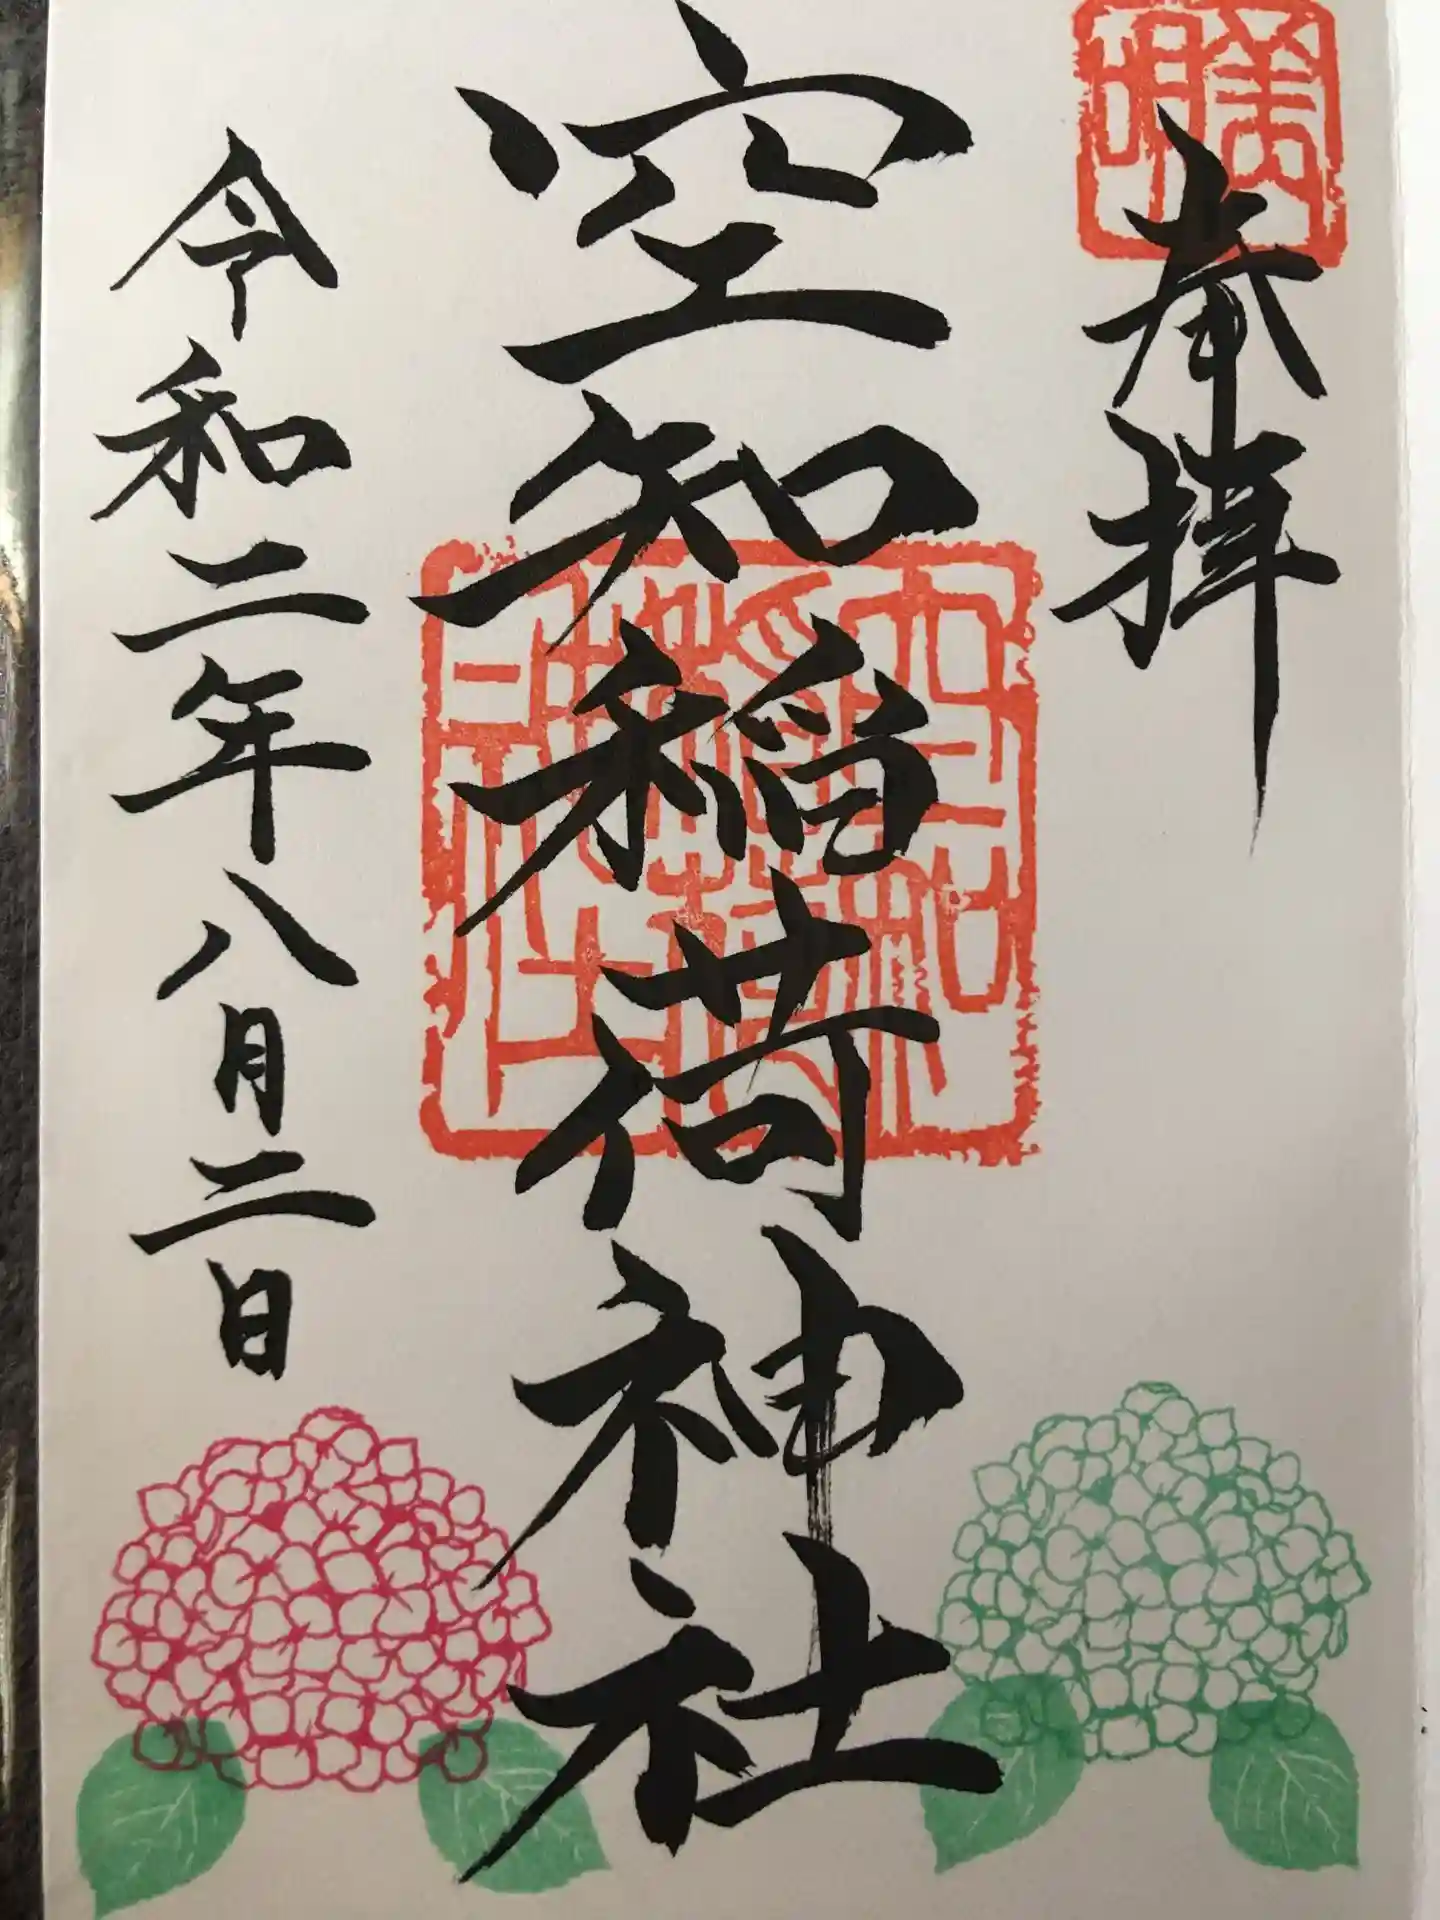 美明
奉拝
空知稲荷神社
令和二年八月二日